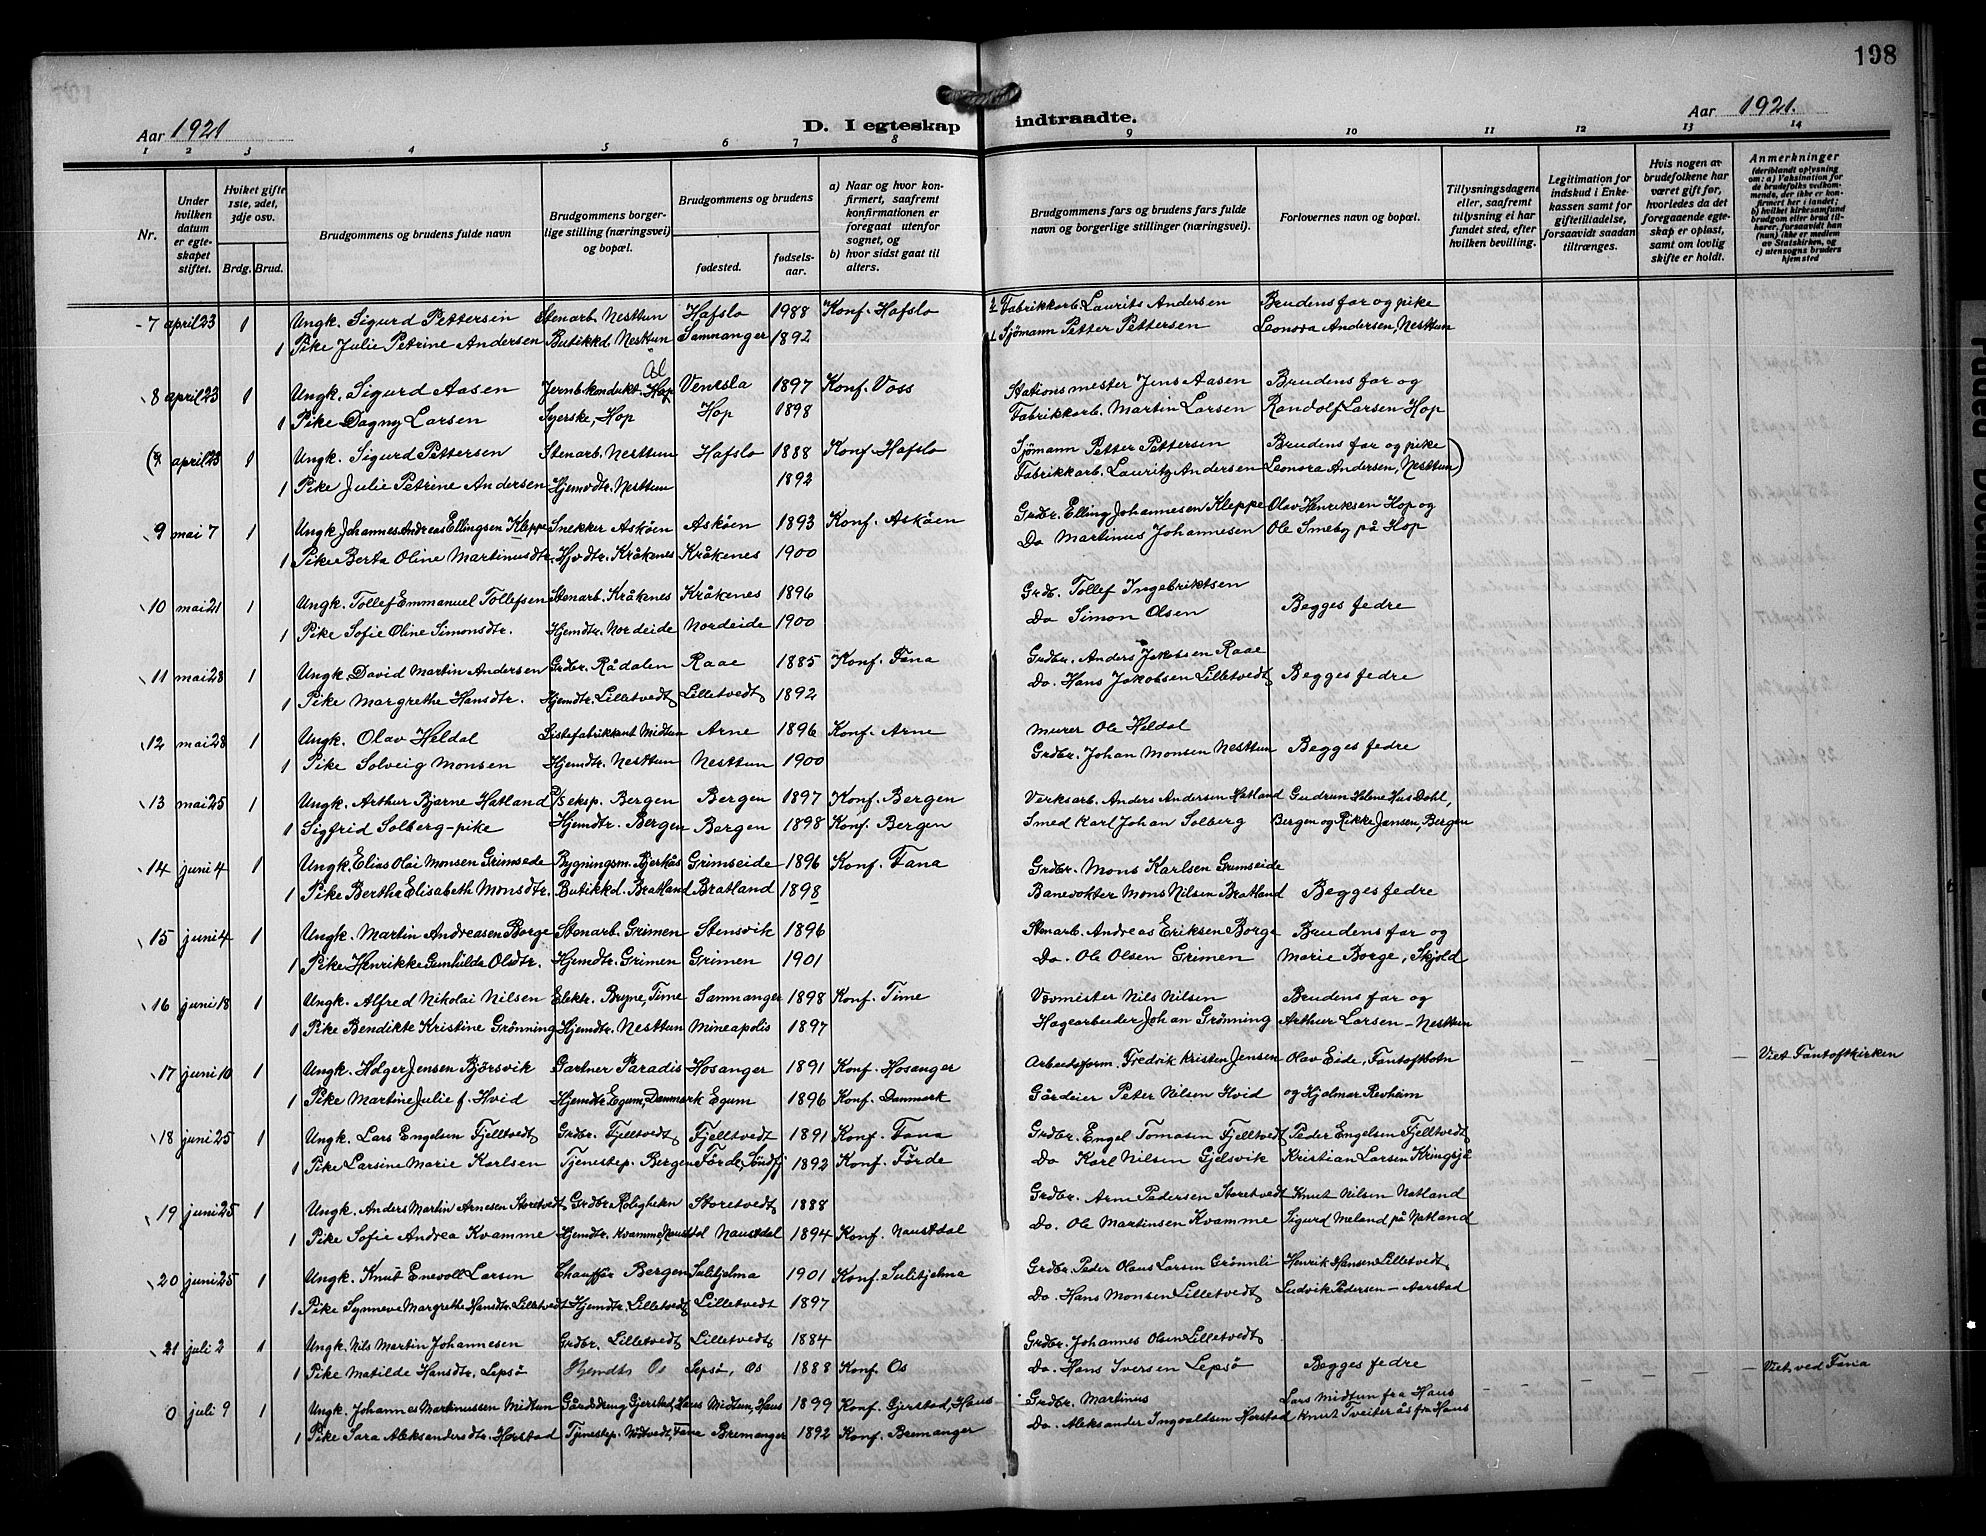 198
Aar 1921
D. I egteskap indtraadte.
Aar 1921.
1 2 3 4 5 6 7 8 9 10 11 12 13 14
Nr.
Under hvilken datum er egteskapet stiftet.
Hvilket gifte 1ste, 2det, 3dje osv.
Brdg. Brud.
Brudgommens og brudens fulde navn
Brudgommens borgerlige stilling (næringsvei) og bopæl.
Brudgommens og brudens
fødested.
fødselsaar.
a) Naar og hvor konfirmert, saafremt konfirmationen er foregaat utenfor sognet, og
b) hvor sidst gaat til alters.
Brudgommens fars og brudens fars fulde navn og borgerlige stillinger (næringsvei).
Forlovernes navn og bopæl.
Tillysningsdagene eller, saafremt tillysning ei har fundet sted, efter hvilken bevilling.
Legitimation for indskud i Enkekassen samt for giftetilladelse, forsaavidt saadan tiltrænges.
Hvis nogen av brudefolkene har været gift før, hvorledes da det foregaaende egteskap er opløst, samt om lovlig skifte er holdt.
Anmerkninger (deriblandt oplysning om: a) Vaksination for de brudefolks vedkommende, der ikke er konfirmert her i landet; b) hvilket kirkesamfund brudgom eller brud tilhører, forsaavidt han (hun) ikke er medlem av Statskirken, og c) utensogns bruders hjemsted
7 april 23 1 Ungk. Sigurd Pettersen Stenarb. Nesttun Hafslo 1988 Konf. Hafslo 2 Fabrikkarb. Laurits Andersen Brudens far og pike
1 Pike Julie Petrine Andersen Butikkd. Nesttun Samnanger 1892 1 Sjömann Petter Pettersen Leonora Andersen, Nesttun
8 april 23 1 Ungk. Sigurd Aasen Jernb. kondukt. Hop Ål Vensla 1897 Konf. Voss Stationsmester Jens Aasen Brudens far og
1 Pike Dagny Larsen Syerske, Hop Hop 1898 Fabrikkarb. Martin Larsen Randolf Larsen Hop
(9 april 23 1 Ungk. Sigurd Pettersen Stenarb. Nesttun Hafslo 1888 Konf. Hafslo Sjömann Petter Pettersen Brudens far og pike
1 Pike Julie Petrine Andersen Hjemdtr. Nesttun 1892 Fabrikkarb. Lauritz Andersen Leonora Andersen, Nesttun)
9 mai 7 1 Ungk. Johannes Andreas Ellingsen Kleppe Snekker Asköen Asköen 1893 Konf. Asköen Grdbr. Elling Johannesen Kleppe Olav Henriksen Hop og
1 Pike Berta Oline Martinusdtr. Hjvdtr. Kråkenes Kråkenes 1900 Do Martinus Johannesen Ole Smeby på Hop
10 mai 21 1 Ungk. Tollef Emmanuel Tollefsen Stenarb. Kråkenes Kråkenes 1896 Grdb. Tollef Ingebriktsen
1 Pike Sofie Oline Simonsdtr. Hjemdtr. Nordeide Nordeide 1900 Do Simon Olsen Begges fedre
11 mai 28 1 Ungk. David Martin Andersen Grdbr. Rådalen Raae 1885 Konf. Fana Grdbr. Anders Jakobsen Raae
1 Pike Margrethe Hansdtr. Hjemdtr. Lilletvedt Lilletvedt 1892 Do. Hans Jakobsen Lilletvedt Begges fedre
12 mai 28 1 Ungk. Olav Heldal Listefabrikkant Midtun Arne 1896 Konf. Arne Murer Ole Heldal
1 Pike Solveig Monsen Hjemdtr. Nesttun Nesttun 1900 Grdbr. Johan Monsen Nesttun Begges fedre
13 mai 25 1 Ungk. Arthur Bjarne Hatland D/S eksp. Bergen Bergen 1897 Konf. Bergen Verksarb. Anders Andersen Hatland Gudrun Helene Hus Dahl,
1 Sigfrid Solberg - pike Hjemdtr. Bergen Bergen 1898 Konf. Bergen Smed Karl Johan Solberg Bergen og Rikke Jansen, Bergen
14 juni 4 1 Ungk. Elias Olai Monsen Grimsede Bygningsm. Bjerkås Grimseide 1896 Konf. Fana Grdbr. Mons Karlsen Grimseide
1 Pike Bertha Elisabeth Monsdtr. Butikkd. Bratland Bratland 1898 Banevokter Mons Nilsen Bratland Begges fedre
15 juni 4 1 Ungk. Martin Andreasen Borge Stenarb. Grimen Stensvik 1896 Stenarb. Andreas Eriksen Borge Brudens far og
1 Pike Henrikke Gunhilda Olsdtr. Hjemdtr. Grimen Grimen 1901 Do. Ole Olsen Grimen Marie Borge, Skjold
16 juni 18 1 Ungk. Alfred Nikolai Nilsen Elektr. Bryne, Time Samnanger 1898 Konf. Time Vovmister Nils Nilsen Brudens far og
1 Pike Bendikte Kristine Grönning Hjemdtr. Nesttun Mineapolis 1897 Hagearbeider Johan Grönning Arthur Larsen - Nesttun
17 juni 10 1 Ungk. Holger Jensen Björsvik Gartner Paradis Hosanger 1891 Konf. Hosanger Arbeidsform. Fredrik Kristen Jensen Olav Eide, Fantoftbotn Viet Fantoftkirken
1 Pike Martine Julie f. Hvid Hjemdtr Egum, Danmark Egum 1896 Konf. Danmark Gårdeier Peter Nilsen Hvid og Hjalmar Revheim
18 juni 25 1 Ungk. Lars Engelsen Fjelltvedt Grdbr. Fjelltvedt Fjelltvedt 1891 Konf. Fana Grdbr. Engel Tomasen Fjelltvedt Peder Engelsen Fjelltvedt
1 Pike Larsine Marie Karlsen Tjenestep. Bergen Förde, Söndfj 1892 Konf. Förde Do Karl Nilsen Gjelsvik Kristian Larsen Kringsjå
19 juni 25 1 Ungk. Anders Martin Arnesen Storetvedt Grdbr Roligheten Storetvedt 1888 Grdbr. Arne Pedersen Storetvedt Knut Nilsen Natland
1 Pike Sofie Andrea Kvamme Hjemdtr. Kvamme, Naustdal Naustdal 1894 Konf. Naustdal Do. Ole Martinsen Kvamme Sigurd Meland på Natland
20 juni 25 1 Ungk. Knut Enevoll Larsen Chaufför Bergen Sulitjelma 1901 Konf. Sulitjelma Grdbr. Peder Olaus Larsen Grönnli Henrik Hansen Lilletvedt
1 Pike Synneve Margrethe Hansdtr. Lilletvedt Hjemdtr. Lilletvedt Lilletvedt 1897 Do. Hans Monsen Lilletvedt Ludvik Pedersen - Aarstad
21 juli 2 1 Ungk. Nils Martin Johannesen Grdbr. Lilletvedt Lilletvedt 1884 Grdbr. Johannes Olsen Lilletvedt
1 Pike Matilde Hansdtr. Lepsö Hjemdtr Os Lepsö, Os 1888 Konf. Os Do. Hans Iversen Lepsö Begges fedre Viet ved Fana
0 juli 9 1 Ungk. Johannes Martinussen Midtun Gjerstad, Haus Midtun, Haus 1899 Konf. Gjerstad, Haus Grdbr. Martinus Lars Midtun fra Haus
1 Pike Sara Aleksandersdtr. Herstad Tjenestep. Midtvedt, Fana Bremanger 1892 Konf. Bremanger Do. Aleksander Ingvaldsen Herstad Knut Tveiterås fra Haus